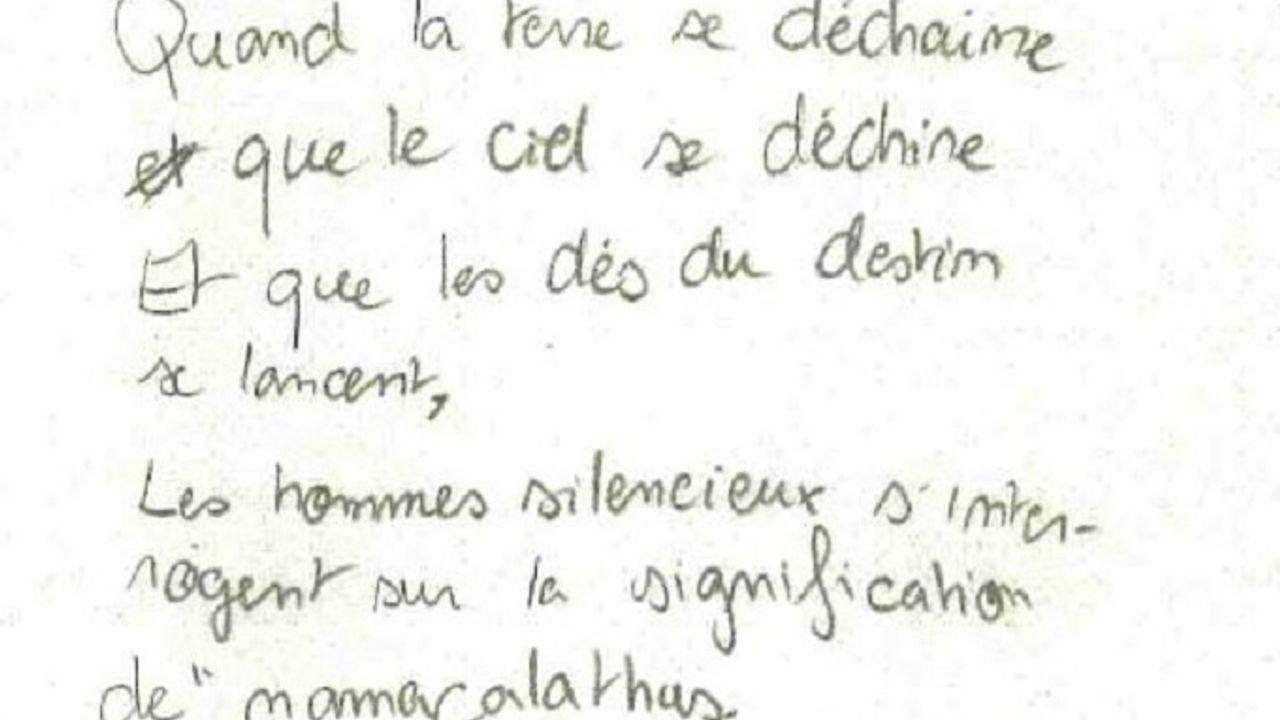 Quand la terre se déchaine
et que le ciel se déchire
Et que les dés du destin
se lancent,
Les hommes silencieux s'inter-
rogent sur la signification
de "